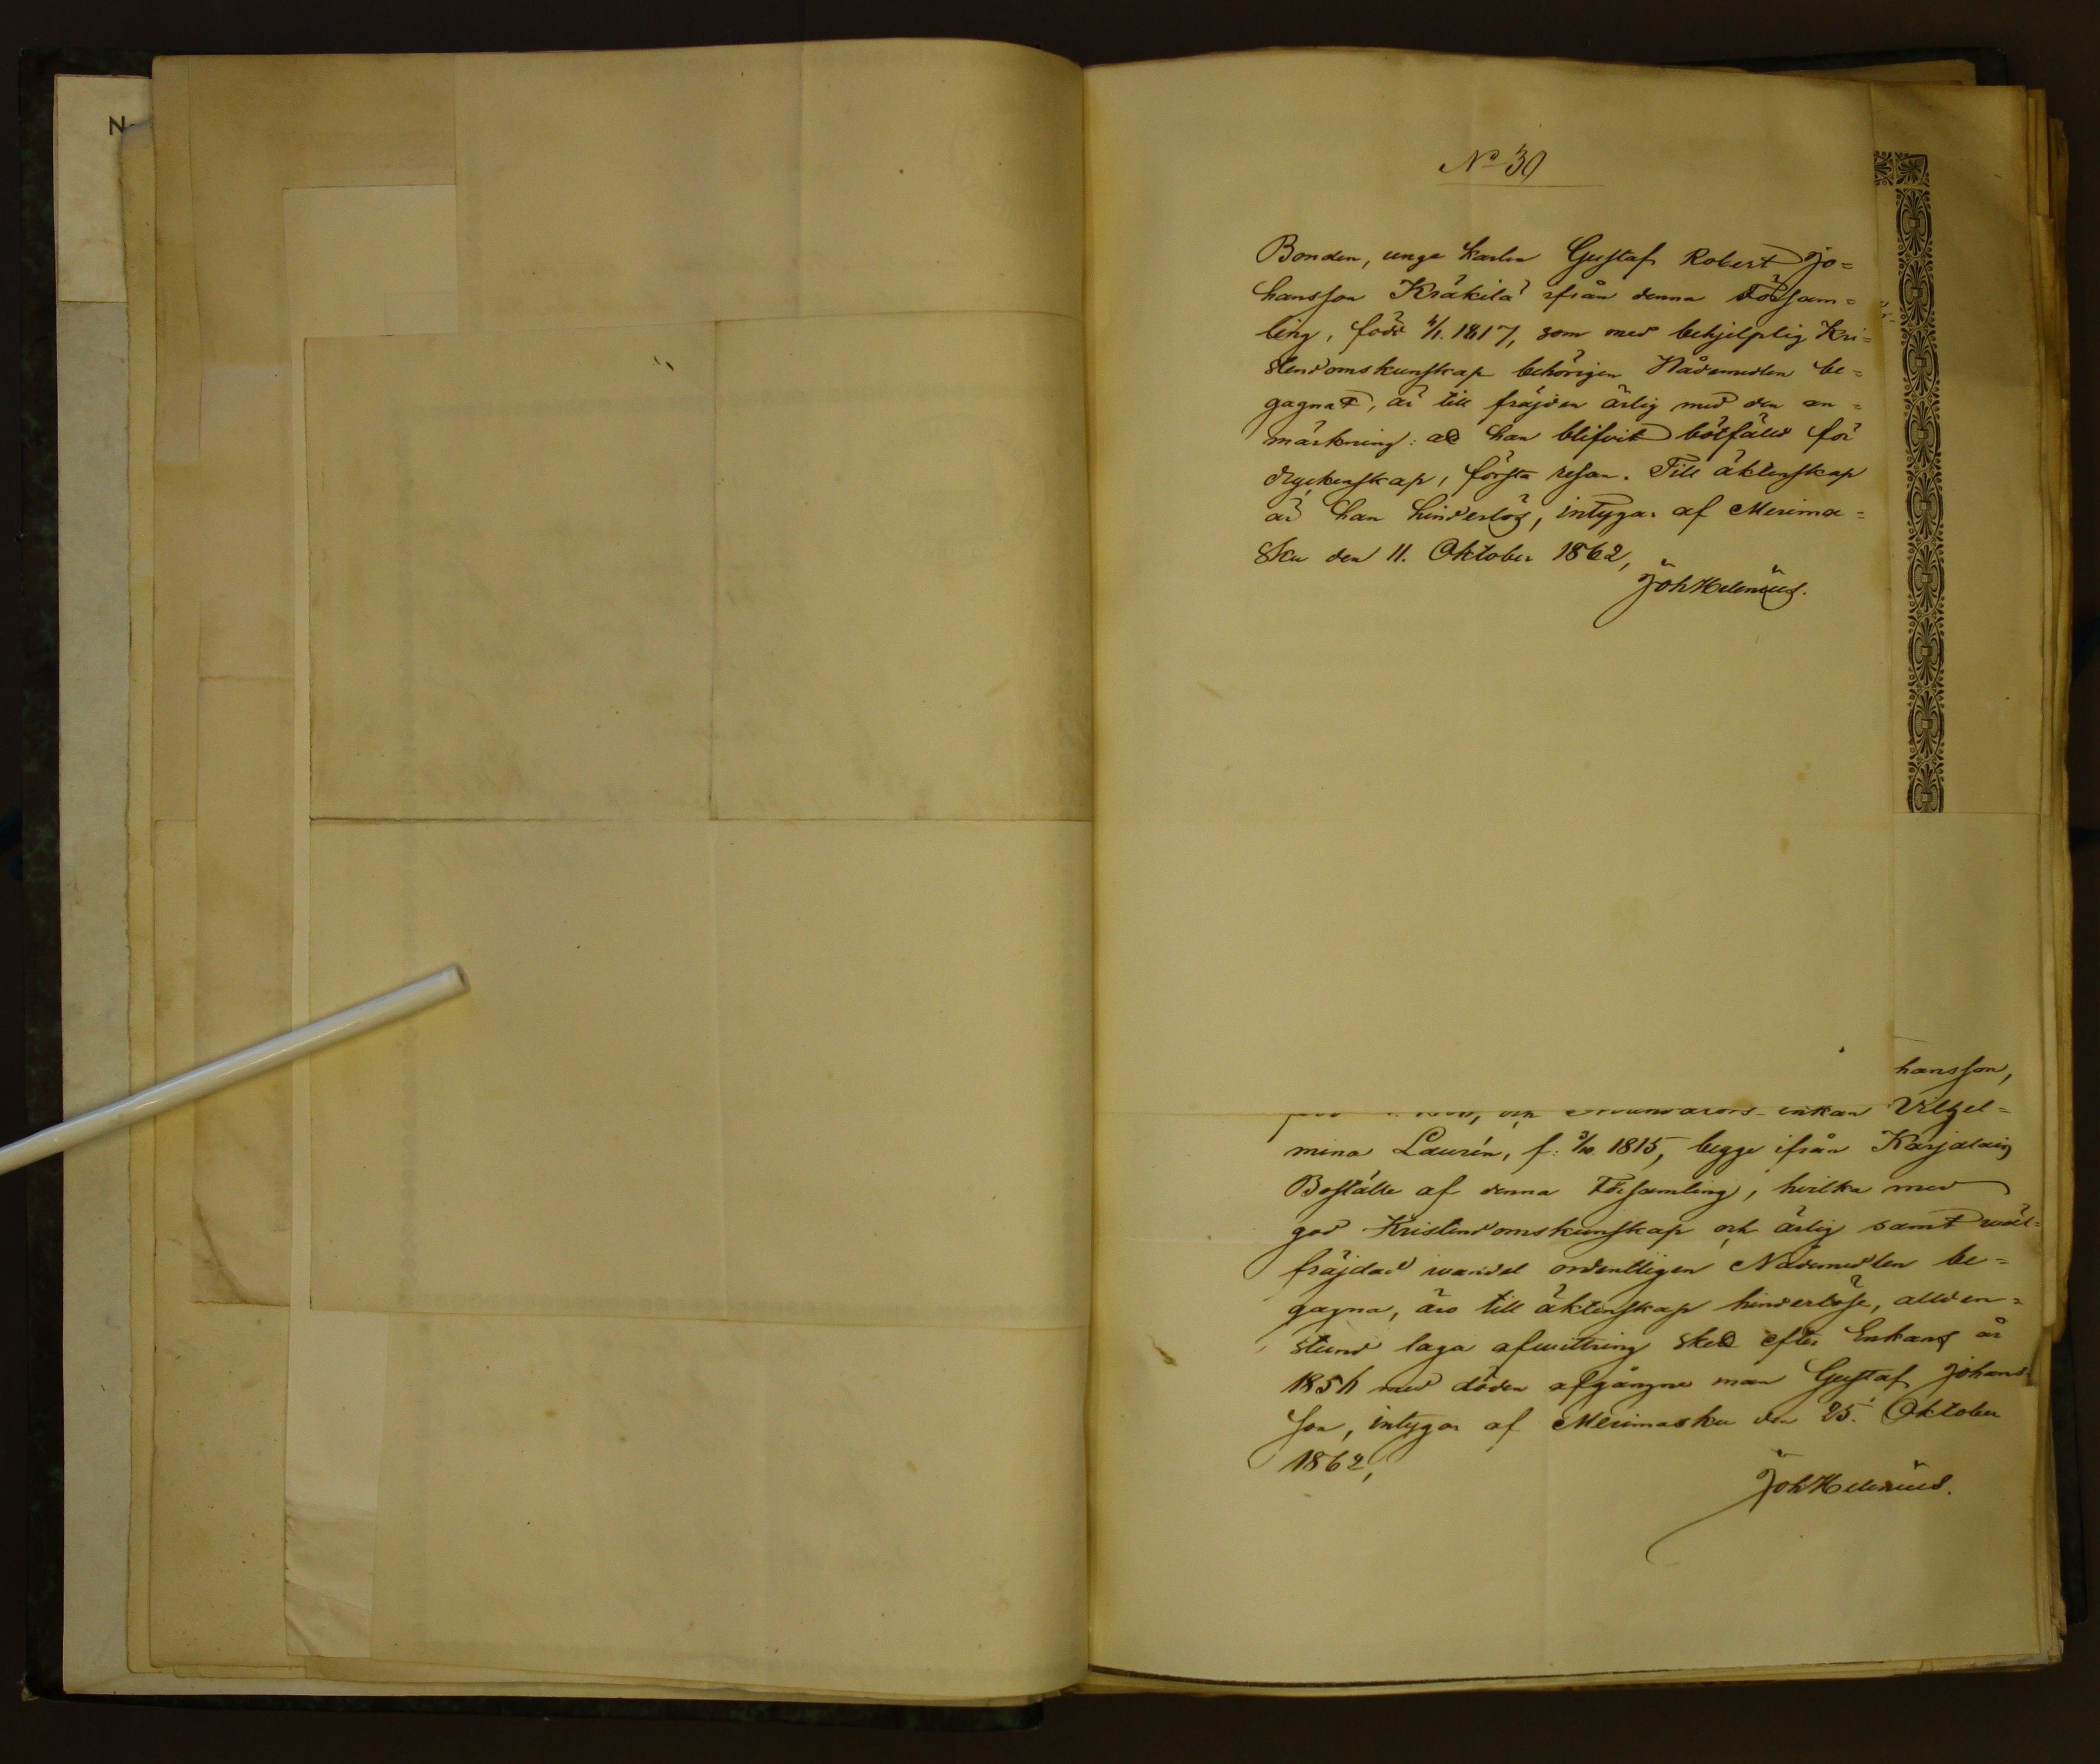 N
No 30
Bonden, unge karlen Gustaf Robert Jo=
hansson Kräkilä ifrån denna Försam=
ling, född 4/1. 1817, som med behjelplig Kri=
stendomskunskap behörigen Nådemedlen be=
gagnat, är till fräjden ärlig med den an=
märkning: att han blifvit bötfälld för
dryckenskap, första resan. Till äktenskap
är han hinderlös, intygar af Merima=
sku den 11. Oktober 1862,
Joh Helenius.
hansson,
enkan Vilhel=
mina Laurén, f. 3/10 1815, begge ifrån Karjalais
Boställe af denna Församling, hvilka med
god Kristendomskunskap och ärlig samt wäl=
fräjdad wandel ordentligen Nådemedlen be=
gagna, äro till äktenskap hinderlöse, allden=
stund laga afwittring skett efter Enkans år
185 med döden afgångne man Gustaf Johans
son, intygar af Merimasku den 25. Oktober
1862,
Joh Helenius.